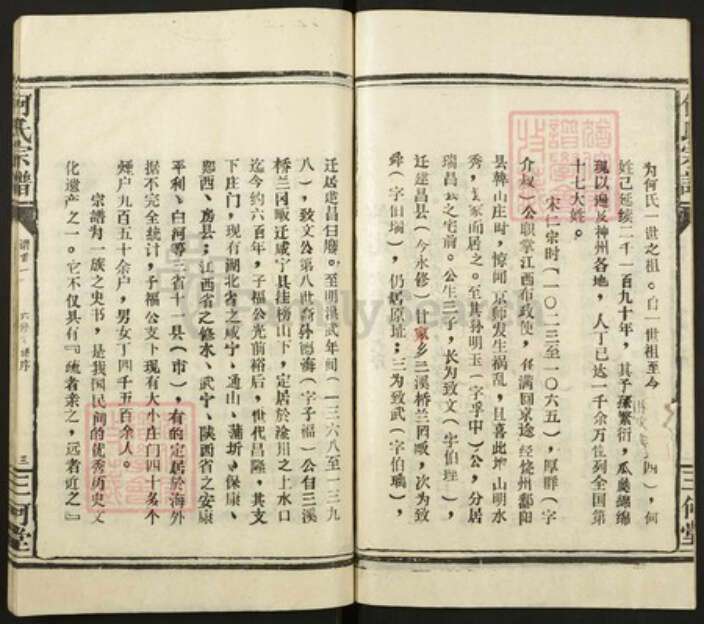 为何氏一世之祖。自一世祖至今
四），何
姓已延续二千一百九十年，其子孙繁衍，瓜瓞绵绵
现以遍及神州各地，人丁已达一千余万位列全国第
十七大姓。
宋仁宗时（一〇二三至一〇六五），厚
（字
公职掌江西布政使，任满回京途经饶州鄱阳
县韩山庄时，惊闻京师发生祸乱，且喜此地山明水
秀，
家而居之。至其孙明玉（字孚中）公，分居
瑞昌
之宅前。公生三子，长为致文（字伯
），
迁建昌县（今永修）廿家乡三溪桥兰冈畈，次为致
舜（字伯瑞），仍居原址；三为致武（字伯瑀），
迁居建昌白
。至明洪武年间（一三六八至一三九
八），致文公第八世裔孙德海（字子福）公自三溪
桥兰冈畈迁咸宁县挂榜山下，定居於淦川之上水口
迄今约六百年，子福公光前裕后，世代昌隆，其支
下庄门，现有湖北省之咸宁、通山、蒲圻、保康、
郧西、房县；江西省之修水、武宁、陕西省之安康
平利、白河等三省十一县（市），有的定居於海外
据不完全统计，子福公支下现有大小庄门四十多个
烟户九百五十余户，男女丁四千五百余人。
宗谱为一族之史书，是我国民间的优秀历史文
化遗产之一。它不仅具有『疏者亲之，远者近之』
何氏宗譜
谱首一
六修
谱序
三
三何堂